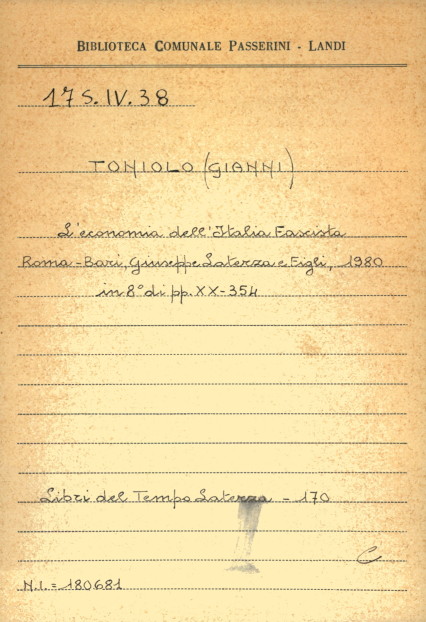 BIBLIOTECA COMUNALE PASSERINI - LANDI
17 S. IV. 38
TONIOLO (GIANNI)
L'economia dell'Italia Fascista
Roma-Bari, Giuseppe Laterza e Figli, 1980
in 8° di pp. XX-354
Libri del Tempo Laterza - 170
C
N.I. = 180681